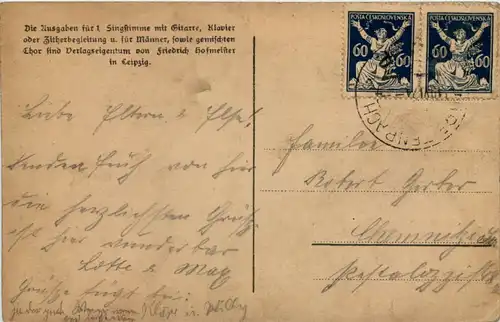 Die Ausgaben für 1 Singstimme mit Gitarre, Klavier
oder Zitherbegleitung u. für Männer, sowie gemischten
Chor sind Verlagseigentum von Friedrich Hofmeister
in Leipzig.
POŠTA ČESKOSLOVENSKÁ
60 60
POŠTA ČESKOSLOVENSKÁ
60 60
Liebe Eltern & Else!
senden Euch von hier
die herzlichsten Grüße
ist hier wunderbar
Lotte & Max
Grüße fügt bei:
u. Willy
Familie
Robert Gerber
Chemnitz
Pestalozzistr.